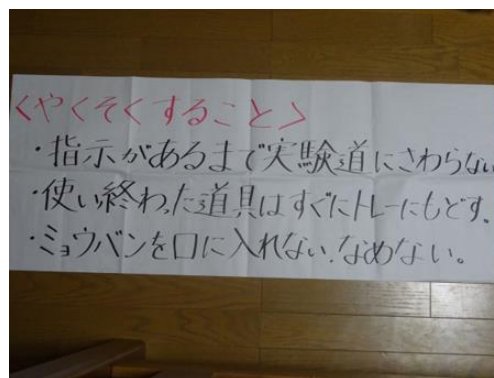 <やくそくすること>
・指示があるまで実験道にさわらない
・使い終わった道具はすぐにトレーにもどす。
・ミョウバンを口に入れない、なめない。